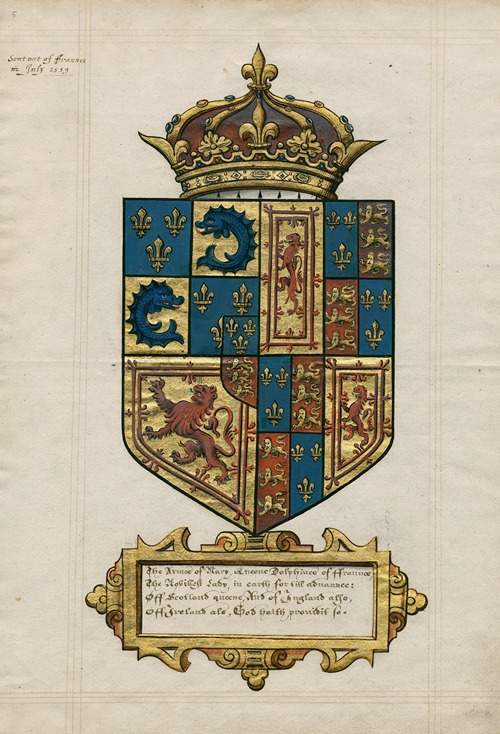 5
Sent out of ffrance
in July 1559
The Armes of Mary Queene Dolphines of ffraunce
The Nobillest Lady in earth for till advaunce:
Off Scotland queene, And of Ingland also,
Off Ireland als, God haith providit so.